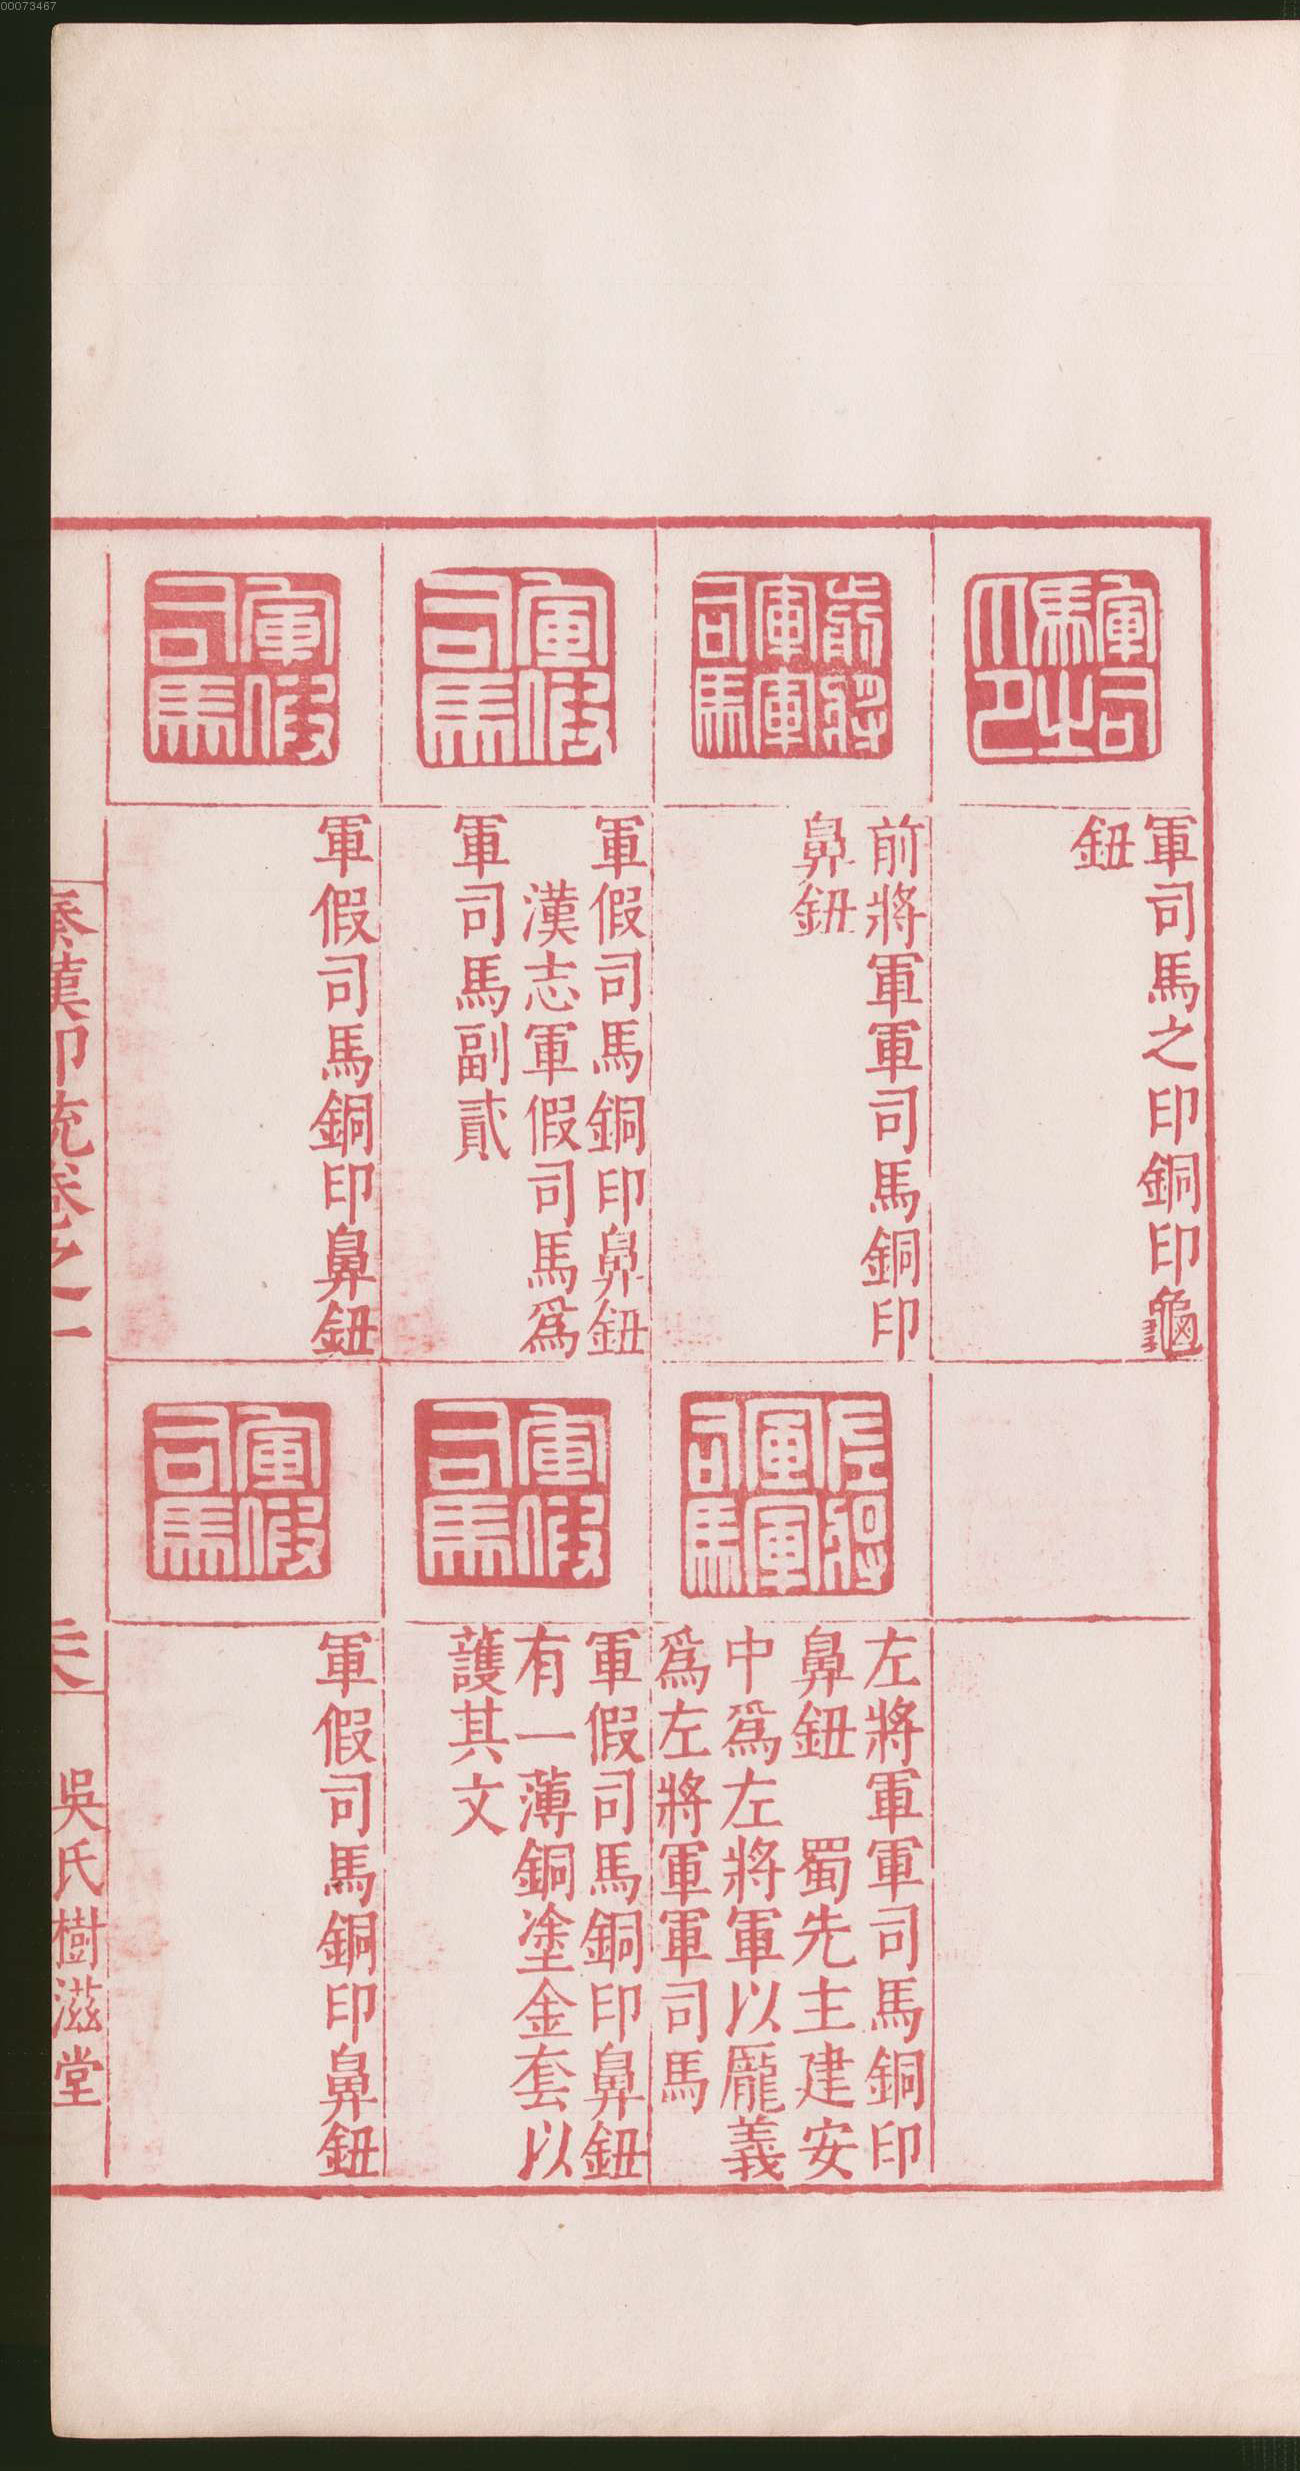 00073467
軍司
馬之
印
軍司馬之印銅印龜
鈕
前將
軍軍
司馬
前將軍軍司馬銅印
鼻鈕
左將
軍軍
司馬
左將軍軍司馬銅印
鼻鈕　蜀先主建安
中爲左將軍以龐義
爲左將軍軍司馬
軍假
司馬
軍假司馬銅印鼻鈕
漢志軍假司馬爲
軍司馬副貳
軍假
司馬
軍假司馬銅印鼻鈕
有一薄銅塗金套以
護其文
軍假
司馬
軍假司馬銅印鼻鈕
軍假
司馬
軍假司馬銅印鼻鈕
秦漢印統卷之一
吳氏樹滋堂